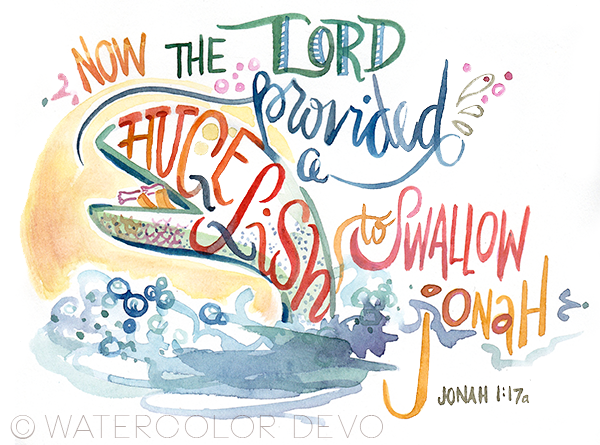 NOW THE LORD
provided
a
HUGE
fish
to SWALLOW
JONAH
JONAH 1:17a
© WATERCOLOR DEVO